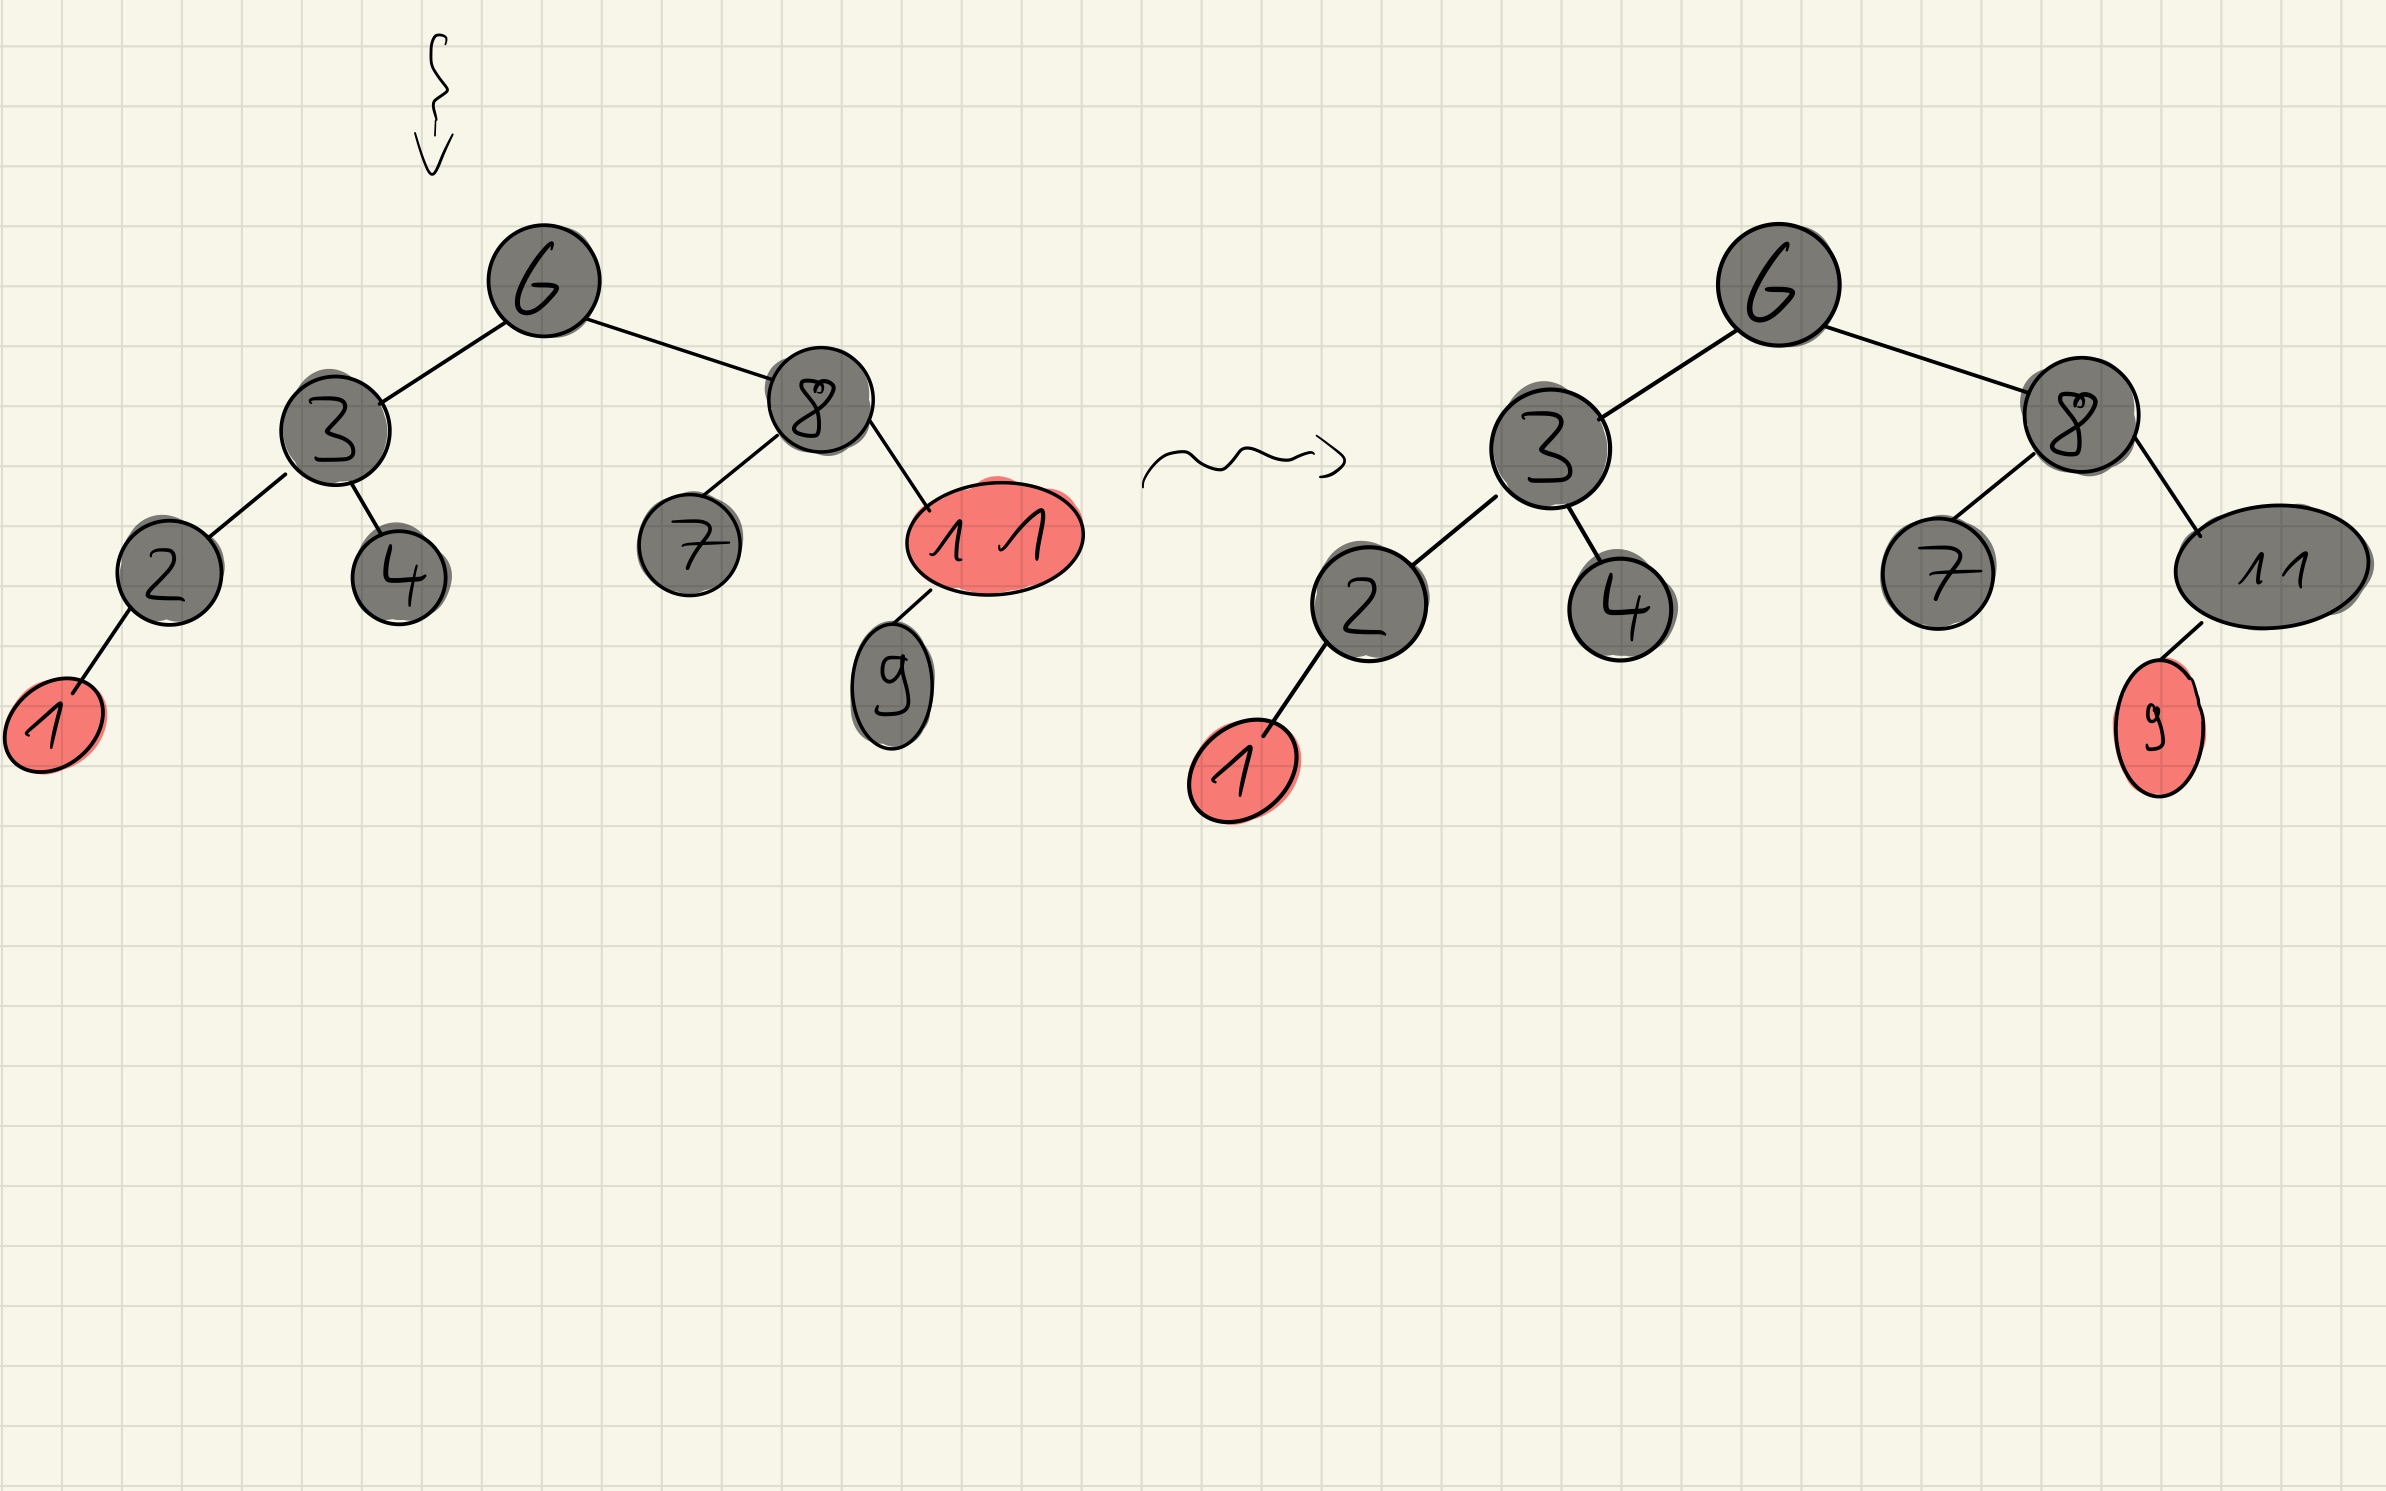 6
3
8
2
4
7
11
1
9
6
3
8
2
4
7
11
1
9